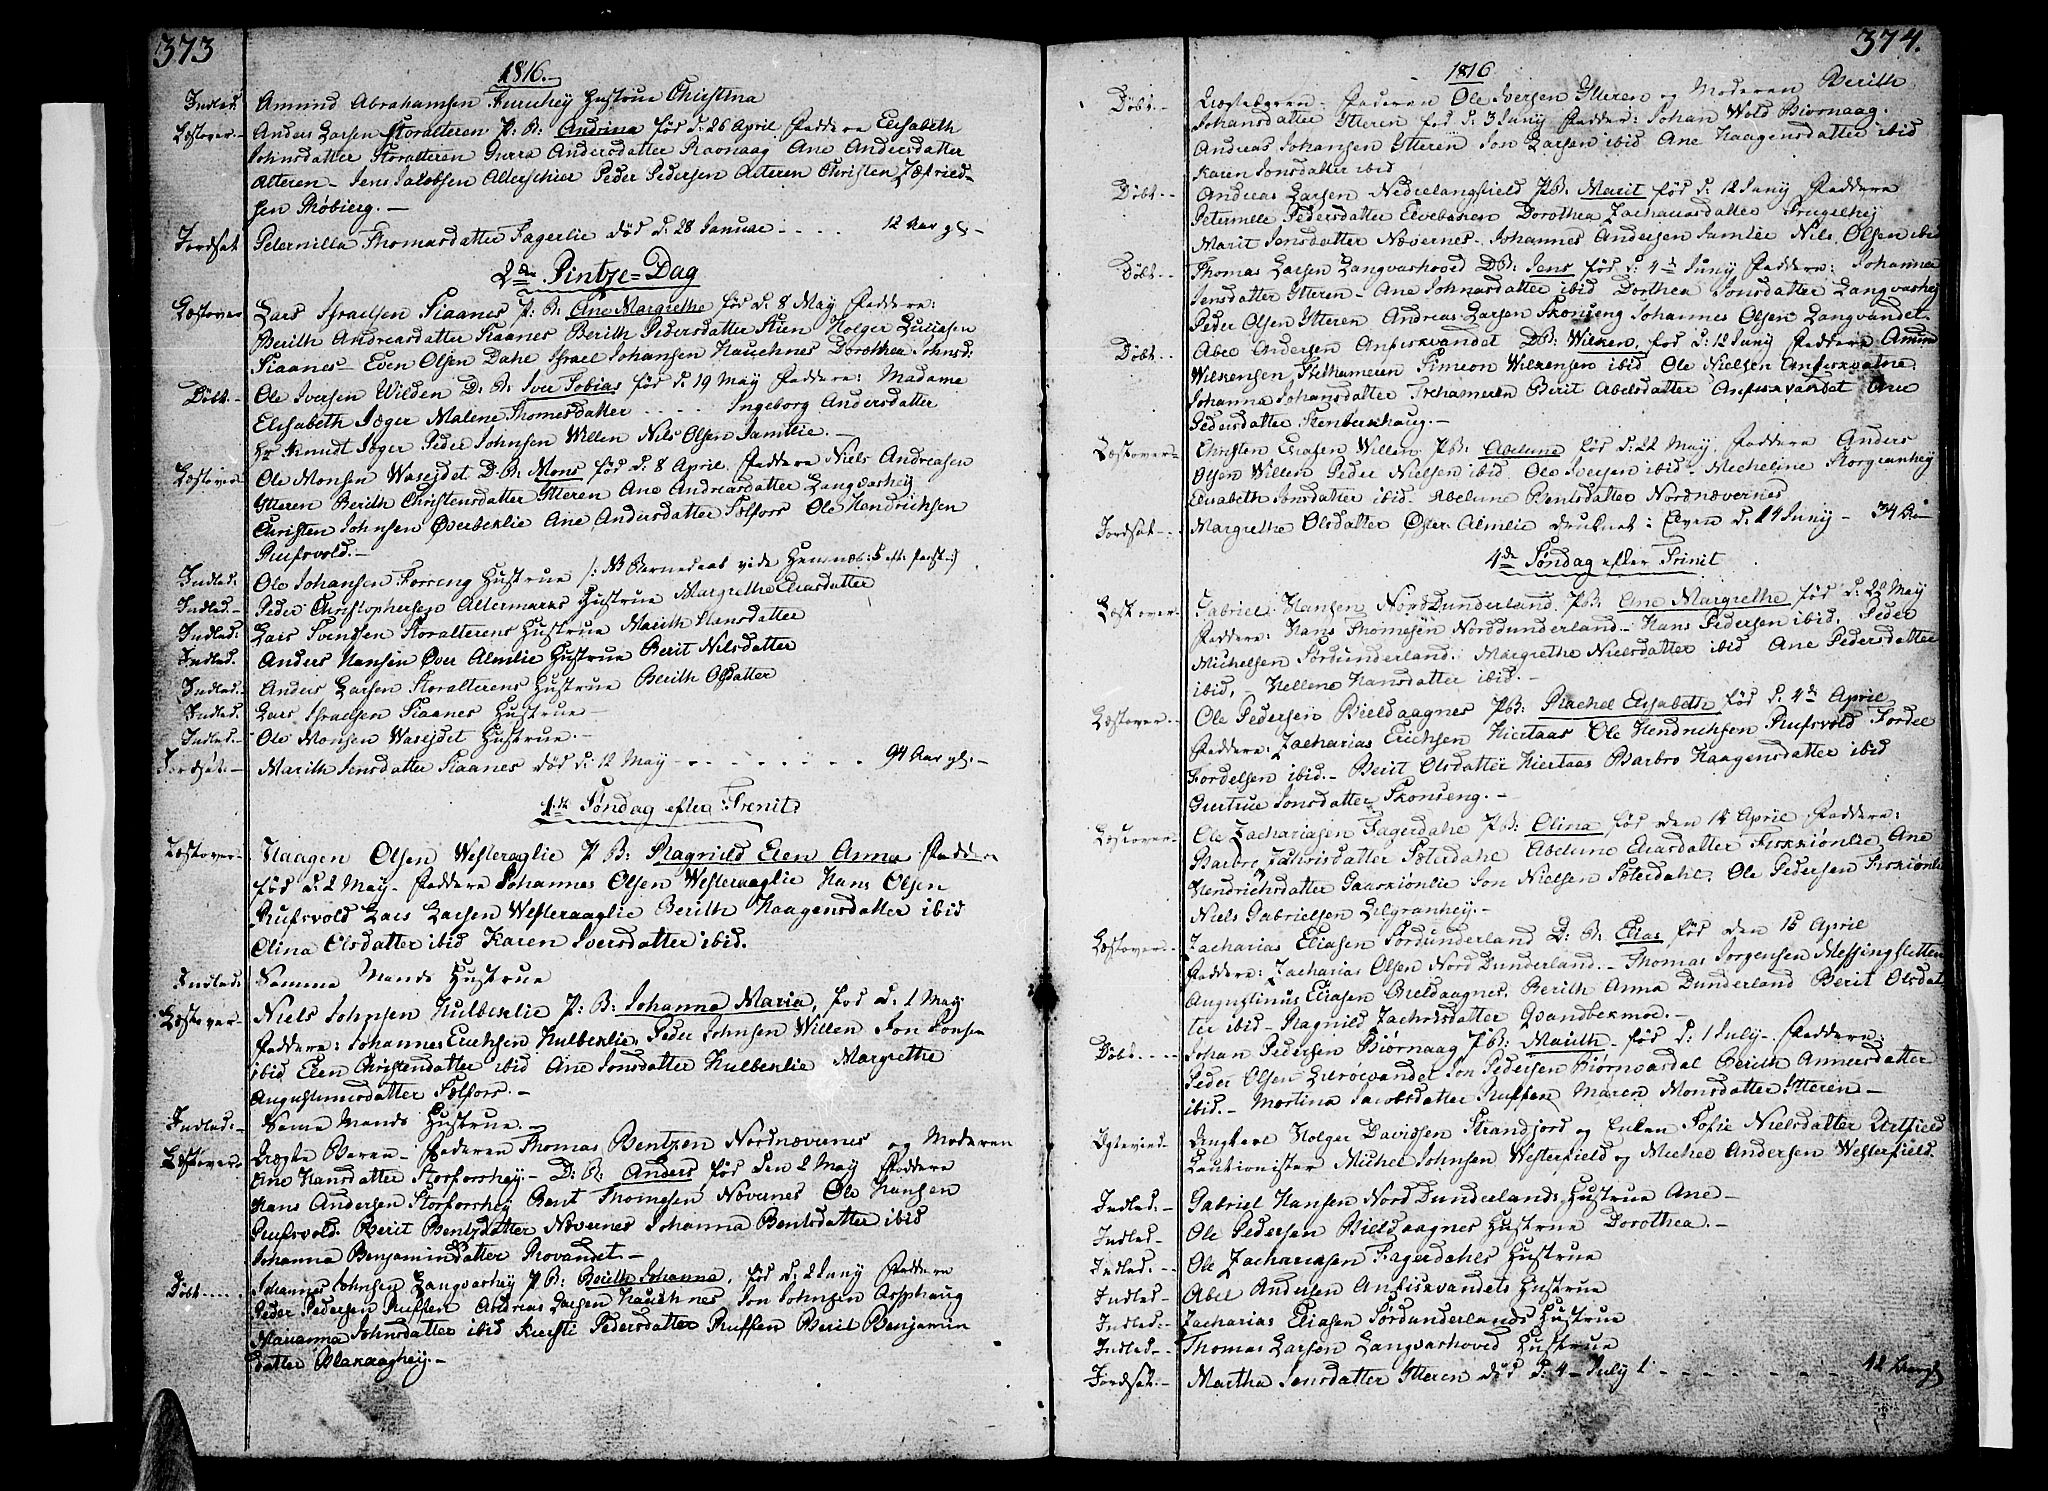 373
1816.
Indled. Amund Abrahamsen Furuhey Hustrue Christina
Læstover- Anders Larsen Storalteren P: B: Andrina fød d: 26 April Faddere Elisabeth
Johnsdatter Storalteren Gurra Andersdatter Ravnaag Ane Andersdatter
Alteren- Jens Jacobsen Alterschier Peder Pedersen Alteren Christen Zefried-
sen Thøbierg.-
Jordsat Peternilla Thomasdatter Fagerlie død d: 28 Januar - - - - 12 Aar gl:-
2den Pintze=Dag
Læstover Lars Israelsen Siaanes P: B: Ane Margrethe fød d: 8 May Faddere:
Berith Andreasdatter Siaanes Berith Pedersdatter Stien Holger Luciasen
Siaanes- Even Olsen Dahl Israel Johansen Hauchnes Dorothea Johnsd:
Døbt- Ole Iversen Wilden D: B: Iver Tobias fød d: 19 May Faddere: Madame
Elisabeth Jæger Malene Thomesdatter - - - - Ingeborg Andersdatter
Hr Knudt Jæger Peder Johnsen Willen Nils Olsen Familie.-
Læstover Ole Monsen Wasejdet D: B: Mons fød d: 8 April Faddere Niels Andreasen
Ytteren Berith Christensdatter Ytteren Ane Andreasdatter Langvashey
Christen Johnsen Øverbeklie Ane Andersdatter Sølfors Ole Hendrichsen
Rufsvold.-
Indled. Ole Johansen Forreng Hustrue
Indled.- Peder Christophersen Altermarks Hustrue Margrethe Eliasdatter
Indled: Lars Svendsen Storalterens Hustrue Marith Hansdatter
Indled. Anders Hansen Øver Almlie Hustrue Berit Nilsdatter
Indled.- Anders Larsen Storalterens Hustrue Berith Olsdatter
Indled. Lars Israelsen Siaanes Hustrue-
Indled.- Ole Monsen Wasejdet Hustrue.-
Jordsat- Marith Jensdatter Siaanes død d: 12 May - - - - - - - 94 Aar gl:-
1ste Søndag efter Trenit:
Læstover- Haagen Olsen Westeraalie P: B: Ragnild Elen Anna Faddere
fød d: 2 May- Faddere Johannes Olsen Westeraaglie Hans Olsen
Rufsvold Lars Larsen Westeraaglie Berith Haagensdatter ibid
Olina Olsdatter ibid Karen Iversdatter ibid.
Indled: Samme Mands Hustrue
Læstover- Niels Johnsen Hulbeklie P: B: Johanna Maria, fød d: 1 May
Faddere: Johannes Erichsen Hulbeklie Peder Johnsen Willen Jon Jonsen
ibid Elen Christendatter ibid Ane Jonsdatter Hulbeklie Margrethe
Augustinusdatter Sølfors.-
Indled:- Samme Mands Hustrue.
Læstover- Uægte Baren- Faderen Thomas Bentzen Nordnævernes og Moderen
Ane Hansdatter Storforshey- D: B: Anders fød den 2 May Faddere
Hans Andersen Storforshey Bent Thomesen Nævernes Ole Hansen
Rufsvold. Berit Bentzdatter Nævernes Johanna Bentsdatter ibid
Johanna Benjamindatter Røvandet-
Døbt.... Johannes Johnsen Langvashey P: B: Berith Johanna, fød d: 2 Juny Faddere
Peder Pedersen Ruffen Andreas Larsen Hauchnes Jon Johnsen Asphaug
Marianna Johnsdatter ibid Kiersti Pedersdatter Ruffen Berit Benjamin
datter Blakaaghey.-
374.
1816
Døbt- Uægtebaren- Faderen Ole Iversen Ytteren og Moderen Berith
Johansdatter Ytteren fød d: 3 Juny Faddere: Johan Wold Biørnaag-
Andreas Johansen Ytteren Jon Larsen ibid Ane Haagensdatter ibid
Karen Jonsdatter ibid
Døbt-- Andreas Larsen Nedrelangfield P:B: Marit fød d: 12 Juny Faddere
Petermelle Pedersdatter Elvebaken Dorothea Zachariasdatter
Marit Jensdatter Nævernes- Johannes Andersen Familie Nils Olsen ibid
Døbt-- Thomas Larsen Langvashoved D:B: Jens fød d: 4de Juny Faddere: Johanna
Jensdatter Ytteren- Ane Johnasdatter ibid Dorthea Jonsdatter Langvashey
Peder Olsen Ytteren Andreas Larsen Skonseng Johannes Olsen Langvandet.
Døbt-- Abel Andersen Anfiskvandet D:B: Wilken, fød d: 12 Juny Faddere Amund
Wilkensen Trethameren Simeon Wilkensen ibid Ole Nielsen Anfiskvatne
Johanna Johansdatter Trehameren Berit Abelsdatter Anfiskvandet Ane
Pedersdatter Stenbekhaug.-
Læstover- Christen Eliasen Willen, P:B: Abelune fød d: 22 May. Faddere Anders
Olsen Willen Peder Nielsen ibid Ole Iversen ibid- Micheline Storgranhey
Elisabeth Jonsdatter ibid. Abelune Bentsdatter Nordnævernes
Jordsat-- Margrethe Olsdatter Øster Almlie druknet i Elven d: 14 Juny - 34 Aar
4de Søndag efter Trinit
Læstover- Gabriel Hansen Nord Dunderland. P:B: Ane Margrethe fød d: 22 May
Faddere: Hans Thomesen Norddunderland- Hans Pedersen ibid. Peder
Michelsen Sørdunderland. Margrethe Nielsdatter ibid Ane Pedersdatter
ibid, Hellene Hansdatter ibid.-
Læstover-- Ole Pedersen Bieldaagnes P:B: Rachel Elisabeth fød d: 4de April
Faddere: Zacharias Erichsen Hiertaas Ole Hendrichsen Rufsvold Fordel
Fordelsen ibid.- Berit Olsdatter Hiertaas Barbro Haagensdatter ibid
Giertrue Jonsdatter Skonseng.-
Læstover- Ole Zachariasen Fagerdahl P:B: Olina fød den 14 April Faddere:
Barbro Zachrisdatter Sæterdahl Abelune Eliasdatter Fiskiønlie Ane
Hendrichsdatter Gaaskiønlie Jon Nielsen Sæterdahl. Ole Pedersen Fiskiønlie
Niels Gabrielsen Lilgranhey.-
Læstover- Zacharias Eliasen Sørdunderland D: B: Elias fød den 15 April
Faddere: Zacharias Olsen Nord Dunderland.- Thomas Jørgensen Messingsletten
Augustinus Eliasen Bieldaagnes. Berith Anna Dunderland Berit Olsdat
ter ibid- Ragnild Zachrisdatter Qvandbekmoe.-
Døbt.--- Johan Pedersen Biørnaag P:B: Marith fød d: 1 July- Faddere:
Peder Olsen Lilrøevandet Jon Pedersen Biørnvasdal Berith Annersdatter
ibid.- Martina Jacobsdatter Ruffen, Maren Monsdatter Ytteren-
Ægteviet- Ungkarl Holger Davidsen Strandjord og Enken Sofie Nielsdatter
Cautionister Michel Johnsen Westerfield og Michel Andersen Westerfield.
Indled.- Gabriel Hansen Nord Dunderlands Hustrue Ane-
Indled- Ole Pedersen Bieldaagnes Hustrue Dorothea.-
Indled.-- Ole Zachariasen Fagerdahls Hustrue
Indled- Abel Andersen Anfiskvandets Hustrue
Indled.- Zacharias Eliasen Sørdunderlands Hustrue
Indled-- Thomas Larsen Langvashoved Hustrue
Jordsat.- Martha Jensdatter Ytteren død d: 4- July - - - - - - - 42 Aar gl